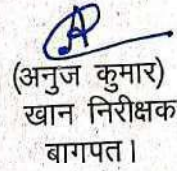 (अनुज कुमार)
खान निरीक्षक
बागपत।